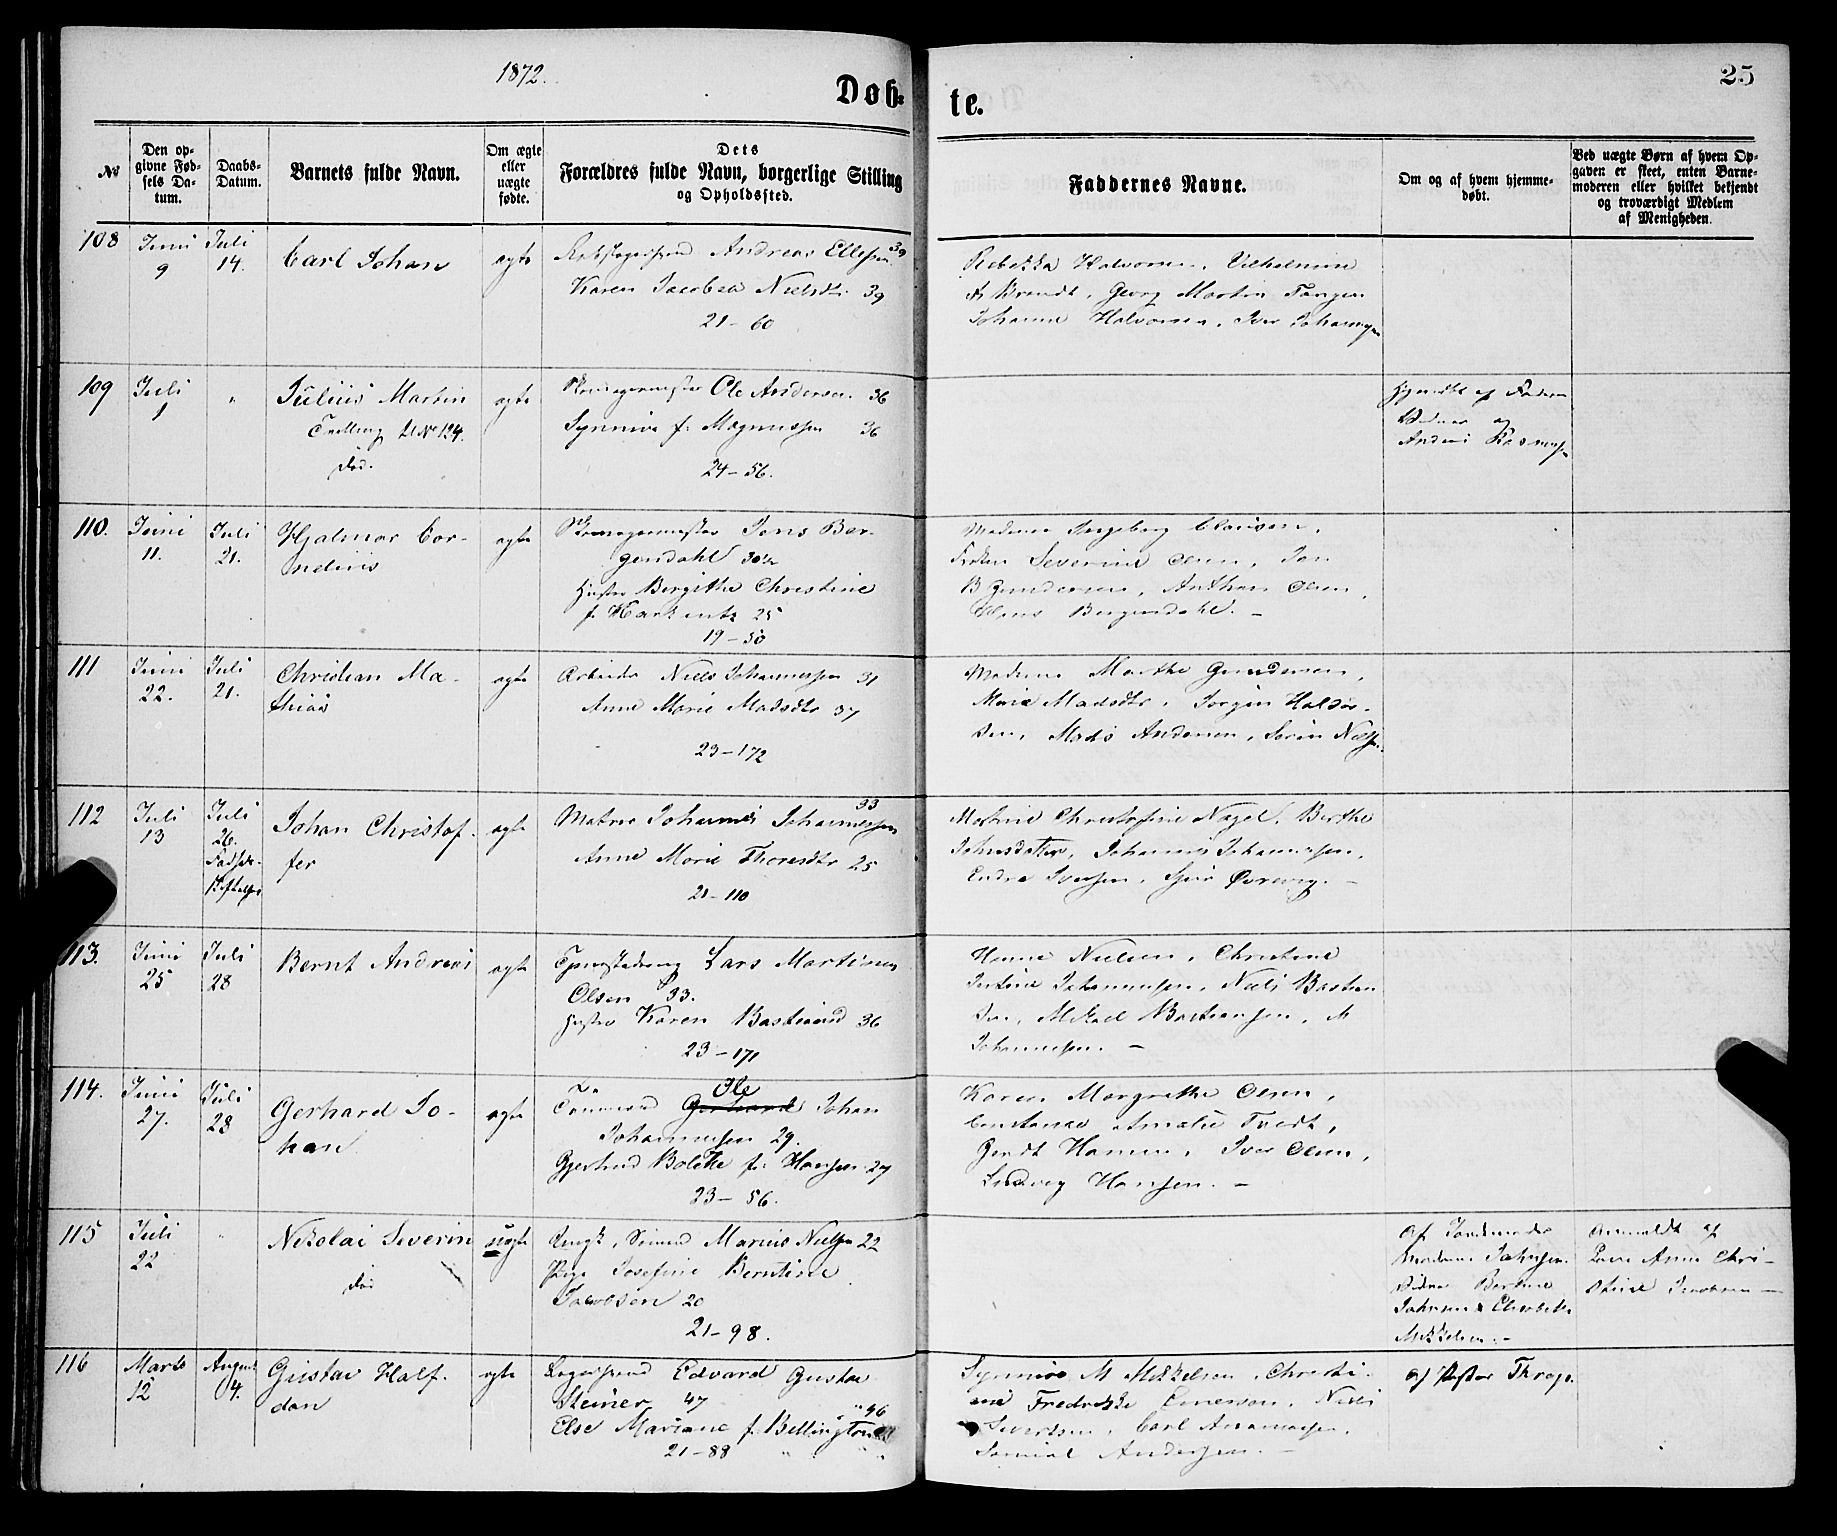 1872.
Døb-
te.
25
№
Den op-
givne Fød-
sels Da-
tum.
Daabs-
Datum.
Barnets fulde Navn.
Om ægte
eller
uægte
fødte.
Dets
Forældres fulde Navn, borgerlige Stilling
og Opholdssted.
Faddernes Navne.
Om og af hvem hjemme-
døbt.
Ved uægte Børn af hvem Op-
gaven er skeet, enten Barne-
moderen eller hvilket bekjendt
og troværdigt Medlem
af Menigheden.
108
Juni
9
Juli
14.
Carl Johan
ægte
Andreas Ellefsen 39
Karen Jacobea Nielsdtr. 39
21-60
Rebekka Halvorsen, Vilhelmine
Brandt, Georg Martin Tangen
Johanne Halvorsen, Iver Johannesen
109
Juli
1
"
Julius Martin
Tvilling til No 124.
død.
ægte
Ole Andersen 36
Synnive f. Magnussen 36
24-56.
Hjemdbt af
og
110.
Juni
11.
Juli
21.
Hjalmar Cor-
nelius
ægte
Jens Ber-
gendahl 30½
Hustru Bergithe Christine
f. 25
19-50
Madame Ingeborg Clausen,
Frøken Severine Olsen, Jan
B Gundersen, Anthon Olsen,
Bergendahl. —
111
Juni
22.
Juli
21.
Christian Ma-
thias
ægte
Arbeider Niels Johannessen 31
Anne Marie Madsdtr 37
23-172
Madame Marthe Gundersen,
Marie Madsdtr, Jørgen Halvor-
sen, Mads Andersen, Søren
112
Juli
13
Juli
26.
Johan Christof-
fer
ægte
Matros Johannes Johannessen 33
Anne Marie Thoresdtr 25
21-110
Martine Christofine Nagel, Berthe
Johnsdatter, Johannes Johannessen,
Endre Iversen,
113.
Juni
25
Juli
28
Bernt Andreas
ægte
Lars Martinus
Olsen 33.
Hustru Karen Bastiansd 36
23-171
Hanne Nielsen, Christine
Johannessen, Niels Bastian
sen, Mikael Bastiansen, M
Johannessen. —
114.
Juni
27.
Juli
28
Gerhard Jo-
han
ægte
Ole
Tømmermd Gerhard Johan
Johannessen 29.
Gjertrud Bolette f. Hansen 27
23-56.
Karen Margrethe Olsen,
Constance Amalie Tvedt,
Gerdt Hansen, Iver Olsen,
Ludvig Hansen. —
115
Juli
22
"
Nikolai Severin
død
uægte
Ungk, Sømand Marius Nielsen 22
Pige Josefine Berntine
Jacobsen 20
21-98.
Af Jordmoder
Madame
Johnsen & Elisabeth
Mikkelsen. —
Anmeldt af
Anne Chri-
stine Jacobsen —
116
Marts
12
August
4.
Gustav Half-
dan
ægte
Edvard Gustav
Steiner 47
Else Mariane f. Bellington 46
21-88
Synnive M Mikkelsen, Christi-
ane Fredrikke Enersen, Niels
Sivertsen, Carl
Andersen. —
af Pastor Thrap.